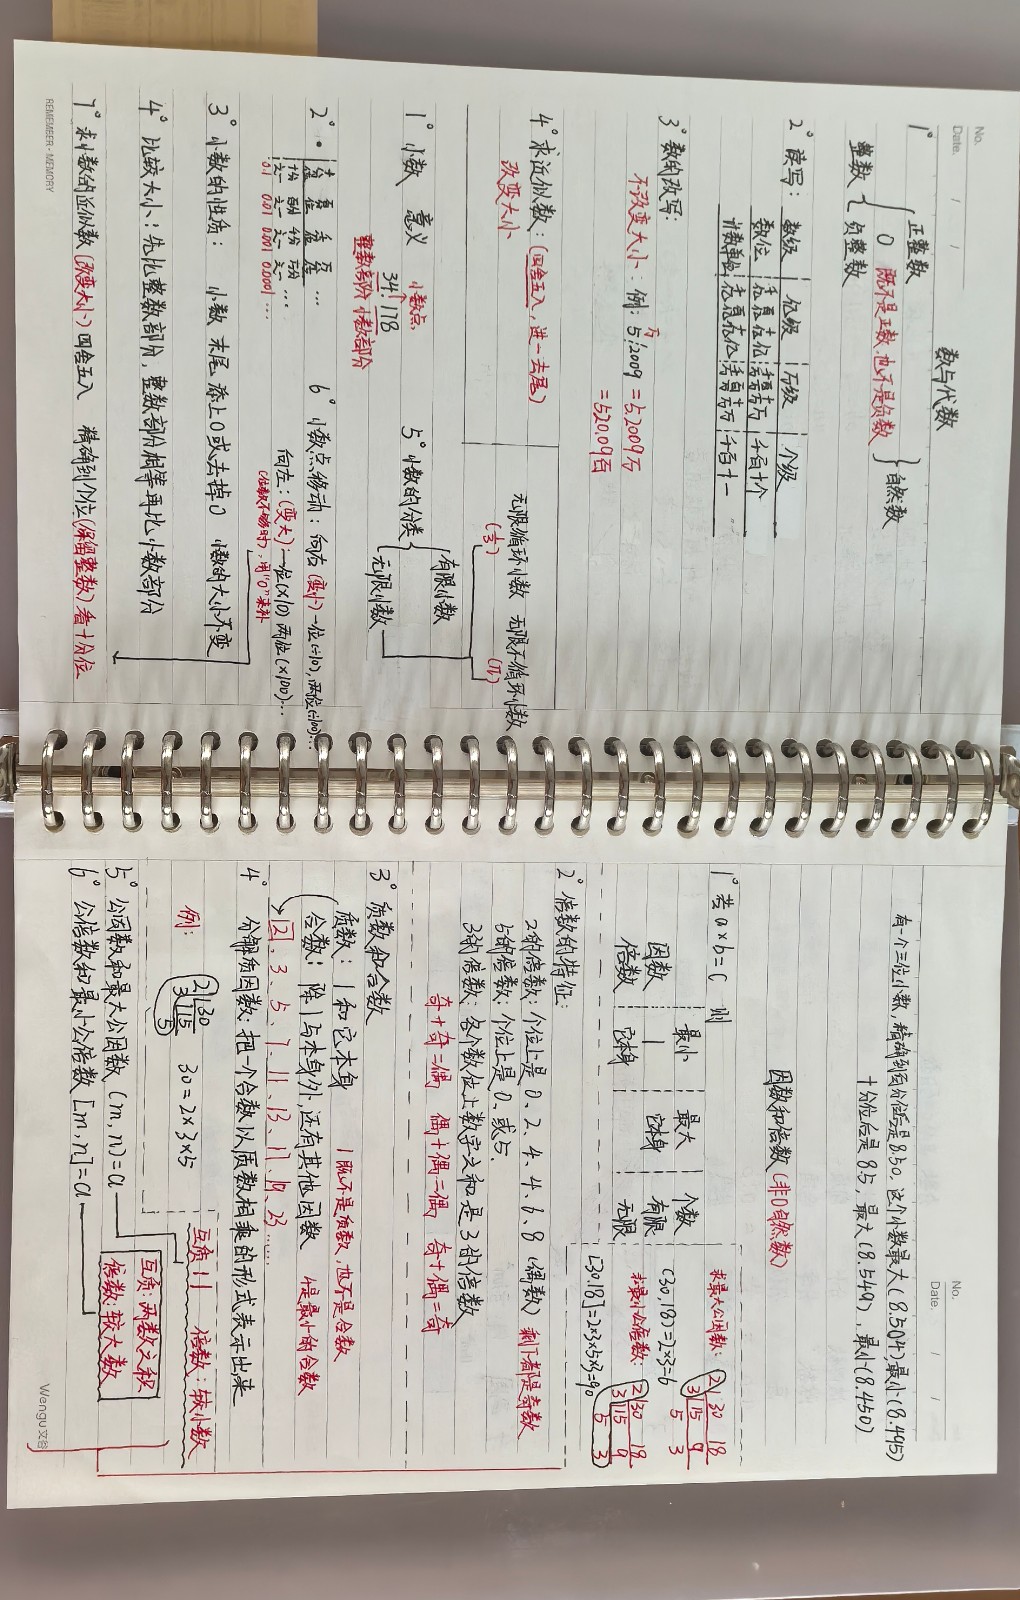 No.
Date. / /
数与代数
1° 整数 { 正整数 0 负整数 } 自然数
既不是正数,也不是负数
2° 读写:
数级 | 亿级 | 万级 | 个级
数位 | 千百十亿 | 千百十万 | 千百十个
计数单位 | 千百十亿 | 千百十万 | 千百十一
3° 数的改写:
不改变大小: 例: 5.2009 = 5.2009万
万
= 520.09百
4° 求近似数: (四舍五入, 进一去尾)
改变大小
无限循环小数 无限不循环小数
(1/3) (π)
1° 小数 意义
小数点
34.178
整数部分 小数部分
5° 小数的分类 { 有限小数 无限小数
2° · 十分位 百 千 万 …
十分之一 百分之一 千分之一 万分之一 …
0.1 0.01 0.001 0.0001 …
6° 小数点移动: 向右 (变小) 一位(÷10), 两位(÷100)…
向左: (变大) 一位(×10) 两位(×100)…
(位数不够时), 用"0"来补
3° 小数的性质: 小数 末尾 添上0或去掉0 小数的大小不变
4° 比较大小: 先比整数部分, 整数部分相等再比小数部分
7° 求小数的近似数 (改变大小) 四舍五入 精确到个位(保留整数) 看十分位
REMEMBER · MEMORY
No.
Date. / /
有一个三位小数, 精确到百分位后是8.50, 这个小数最大(8.504), 最小(8.495)
十分位后是8.5, 最大(8.549), 最小(8.450)
因数和倍数 (非0自然数)
1° 若a×b=c 则
最小 | 最大 | 个数
因数 | 1 | 它本身 | 有限
倍数 | 它本身 | | 无限
求最大公因数: 2 30 18
3 15 9
5 3
(30,18)=2×3=6
求最小公倍数: 2 30 18
3 15 9
5 3
[30,18]=2×3×5×3=90
2° 倍数的特征:
2的倍数: 个位上是0、2、4、6、8 (偶数) 剩下都是奇数
5的倍数: 个位上是0、或5.
3的倍数: 各个数位上数字之和是3的倍数
奇+奇=偶 偶+偶=偶 奇+偶=奇
3° 质数和合数
质数: 1和它本身 1既不是质数, 也不是合数
合数: 除1与本身外, 还有其他因数 4是最小的合数
2、3、5、7、11、13、17、19、23……
4° 分解质因数: 把一个合数以质数相乘的形式表示出来
例: 2 30
3 15
5
30=2×3×5
互质: 1 倍数: 较小数
5° 公因数和最大公因数 (m,n)=a
6° 公倍数和最小公倍数 [m,n]=a
互质: 两数之积
倍数: 较大数
Wengu 文谷